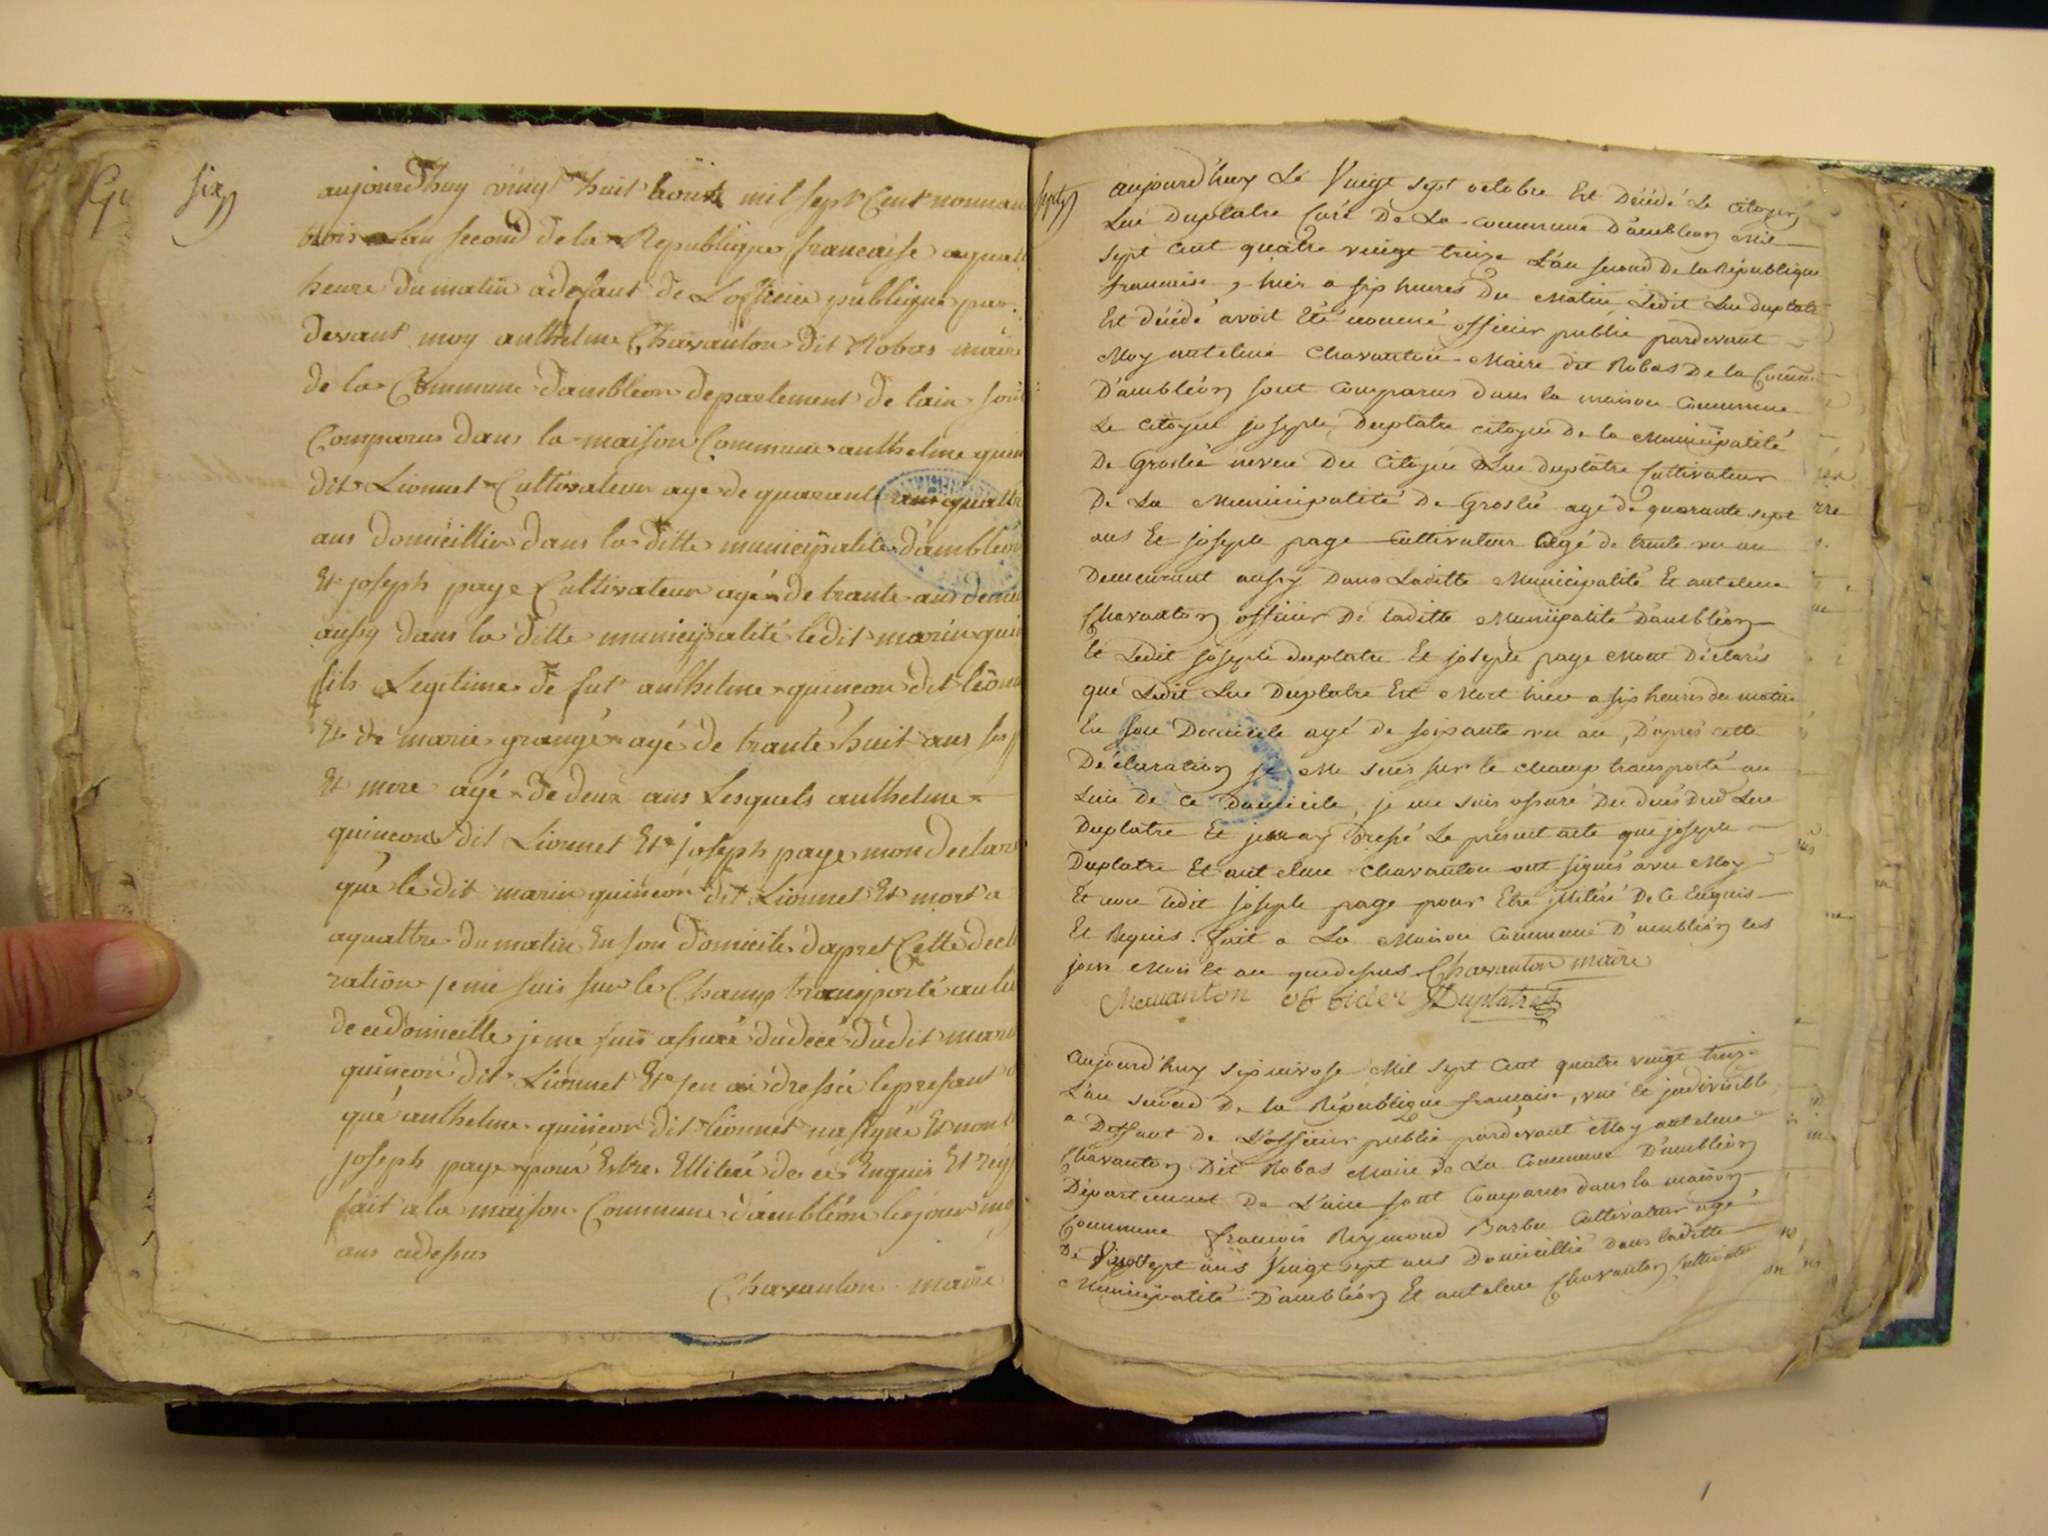 six
aujourd'huy vingt huit aoust mil sept Cent nonnan
trois Lan second de la Republique francaise a quatt
heure du matin a defaut de Lofficier publique par
devant moy anthelme Chavanton dit Robas maire
de la Commune dambleon departement de lain sont
Comparus dans la maison Commune anthelme quin
dit Lionnet Cultivateur age de quarante quattre
ans domicillier dans la ditte municipalité dambleon
Et joseph page Cultivateur agé de trante ans
ausy dans la ditte municipalité ledit marin quin
fils Legitime de fut anthelme quincon dit lionn
Et de marie grangé agé de trante huit ans ses p
Et mere agé de deux ans Lesquels anthelme
quincon dit Lionnet Et joseph page mon declar
que le dit marin quincon dit Lionnet Et mort a
a quattre du matin En son domicile dapret Cette decl
ration je me suis sur le Champ transporté au li
de ce domicille je me suis asuré du decé dudit mar
quincon dit Lionnet Et jen ai dressée le presant
que anthelme quincon dit lionnet na signé Et non
joseph page pour Estre Illiteré de ce Enquis Et req
fait a la maison Commune d'ambléon les jour mo
ans cudessus
Chavanton maire
sept
aujourd'huy Le Vingt sept octobre Est Décédé Le Citoyen
Luc Duplatre Curé De La commune D'ambleon Mil
sept Cent quatre vingt treize L'an second De la République
francaise, hier a six heures Du Matin Ledit Luc duplatre
Est décédé avoit Eté nommé officier public pardevant
Moy antelme Chavanton Maire dit Robas De la Comm
D'ambléon sont Comparus dans la maison Commune
Le Citoyen joseph Duplatre citoyen de la Municipalité
De Groslée neveu Du Citoyen Luc duplâtre Cultivateur
De La Municipalité De Groslée agé de quarante sept
ans Et joseph page Cultivateur Agé de trente un an
Demeurant aussy Dans Laditte Municipalité Et antelme
Chavanton officier De laditte Municipalité D'ambléon
Et Ledit joseph duplatre Et joseph page Mont Déclarés
que Ledit Luc Duplatre Est Mort hier a six heures du matin
En son Domicile agé de soixante un an, D'après cette
Déclaration je Me suis sur le champ transporté au
Lieu De Ce Domicile, je me suis assuré Du décès Dud Luc
Duplatre Et jen ay Dressé Le présent acte que joseph
Duplatre Et antelme Chavanton ont signés avec Moy
Et non ledit joseph page pour Etre illitéré De Ce Enquis
Et Requis. fait a La Maison Commune D'ambléon les
jour Mois Et an que dessus Chavanton maire
Chavanton officier Duplatre
aujourd'huy six nivose Mil sept Cent quatre vingt treize
L'an second De la République francaise, une Et indivisible
a Deffaut De L'officier public pardevant Moy antelme
Chavanton Dit Robas Maire De La Commune D'ambléon
Département De L'ain sont Comparus dans la maison
Commune francois Reymond Barbu Cultivateur agé
De Vingt sept ans Domicillié Dans laditte
Municipalité D'ambléon Et antelme Chavanton Cultivateur